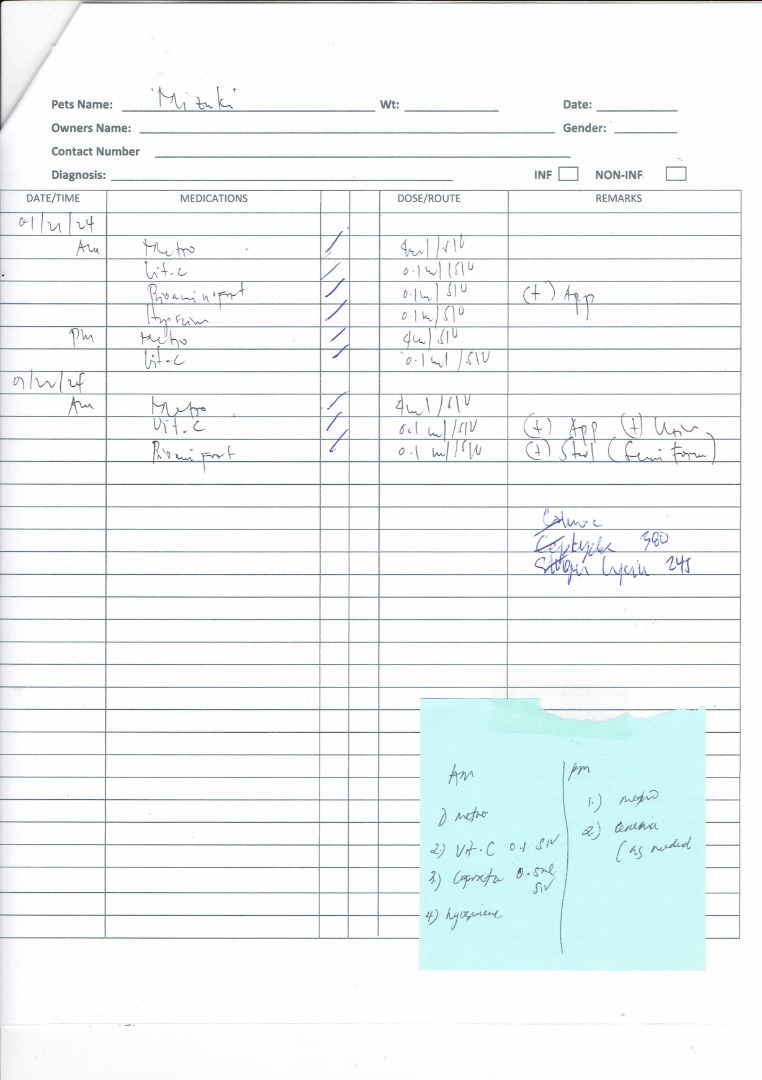 Pets Name: "Mizuki" Wt: Date:
Owners Name: Gender:
Contact Number
Diagnosis: INF NON-INF
DATE/TIME MEDICATIONS DOSE/ROUTE REMARKS
01/21/24
Am Metro 4ml/SIV
Vit.C 0.1ml/SIV
0.1ml/SIV (+) App
0.1ml/SIV
pm Metro 4ml/SIV
Vit.C 0.1ml/SIV
01/22/24
Am Metro 4ml/SIV
Vit.C 0.1 ml/SIV (+) App (+) Urin
0.1 ml/SIV (+) Stool (Semi Form)
380
245
Am pm
1) metro
2.) Vit.C 0.1 SIV
3.) 0.5ml
SIV
4)
1.) metro
2.) cerenia
(as needed